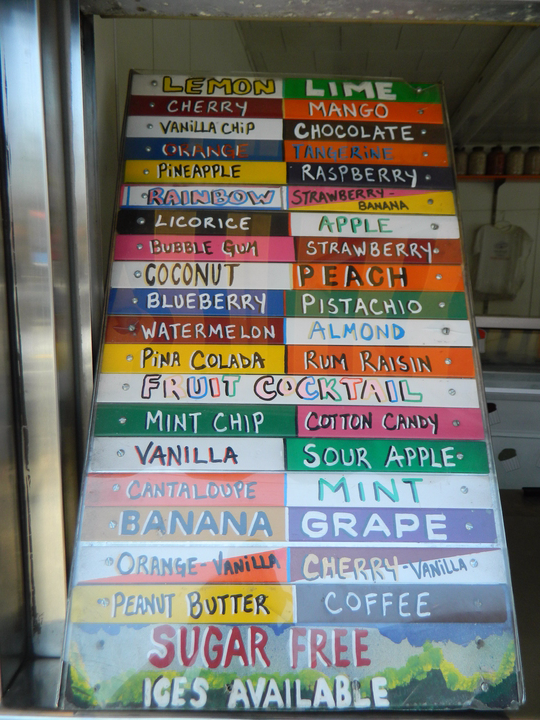 LEMON LIME
CHERRY MANGO
VANILLA CHIP CHOCOLATE
ORANGE TANGERINE
PINEAPPLE RASPBERRY
RAINBOW STRAWBERRY-
BANANA
LICORICE APPLE
BUBBLE GUM STRAWBERRY
COCONUT PEACH
BLUEBERRY PISTACHIO
WATERMELON ALMOND
PINA COLADA RUM RAISIN
FRUIT COCKTAIL
MINT CHIP COTTON CANDY
VANILLA SOUR APPLE
CANTALOUPE MINT
BANANA GRAPE
ORANGE-VANILLA CHERRY-VANILLA
PEANUT BUTTER COFFEE
SUGAR FREE
ICES AVAILABLE